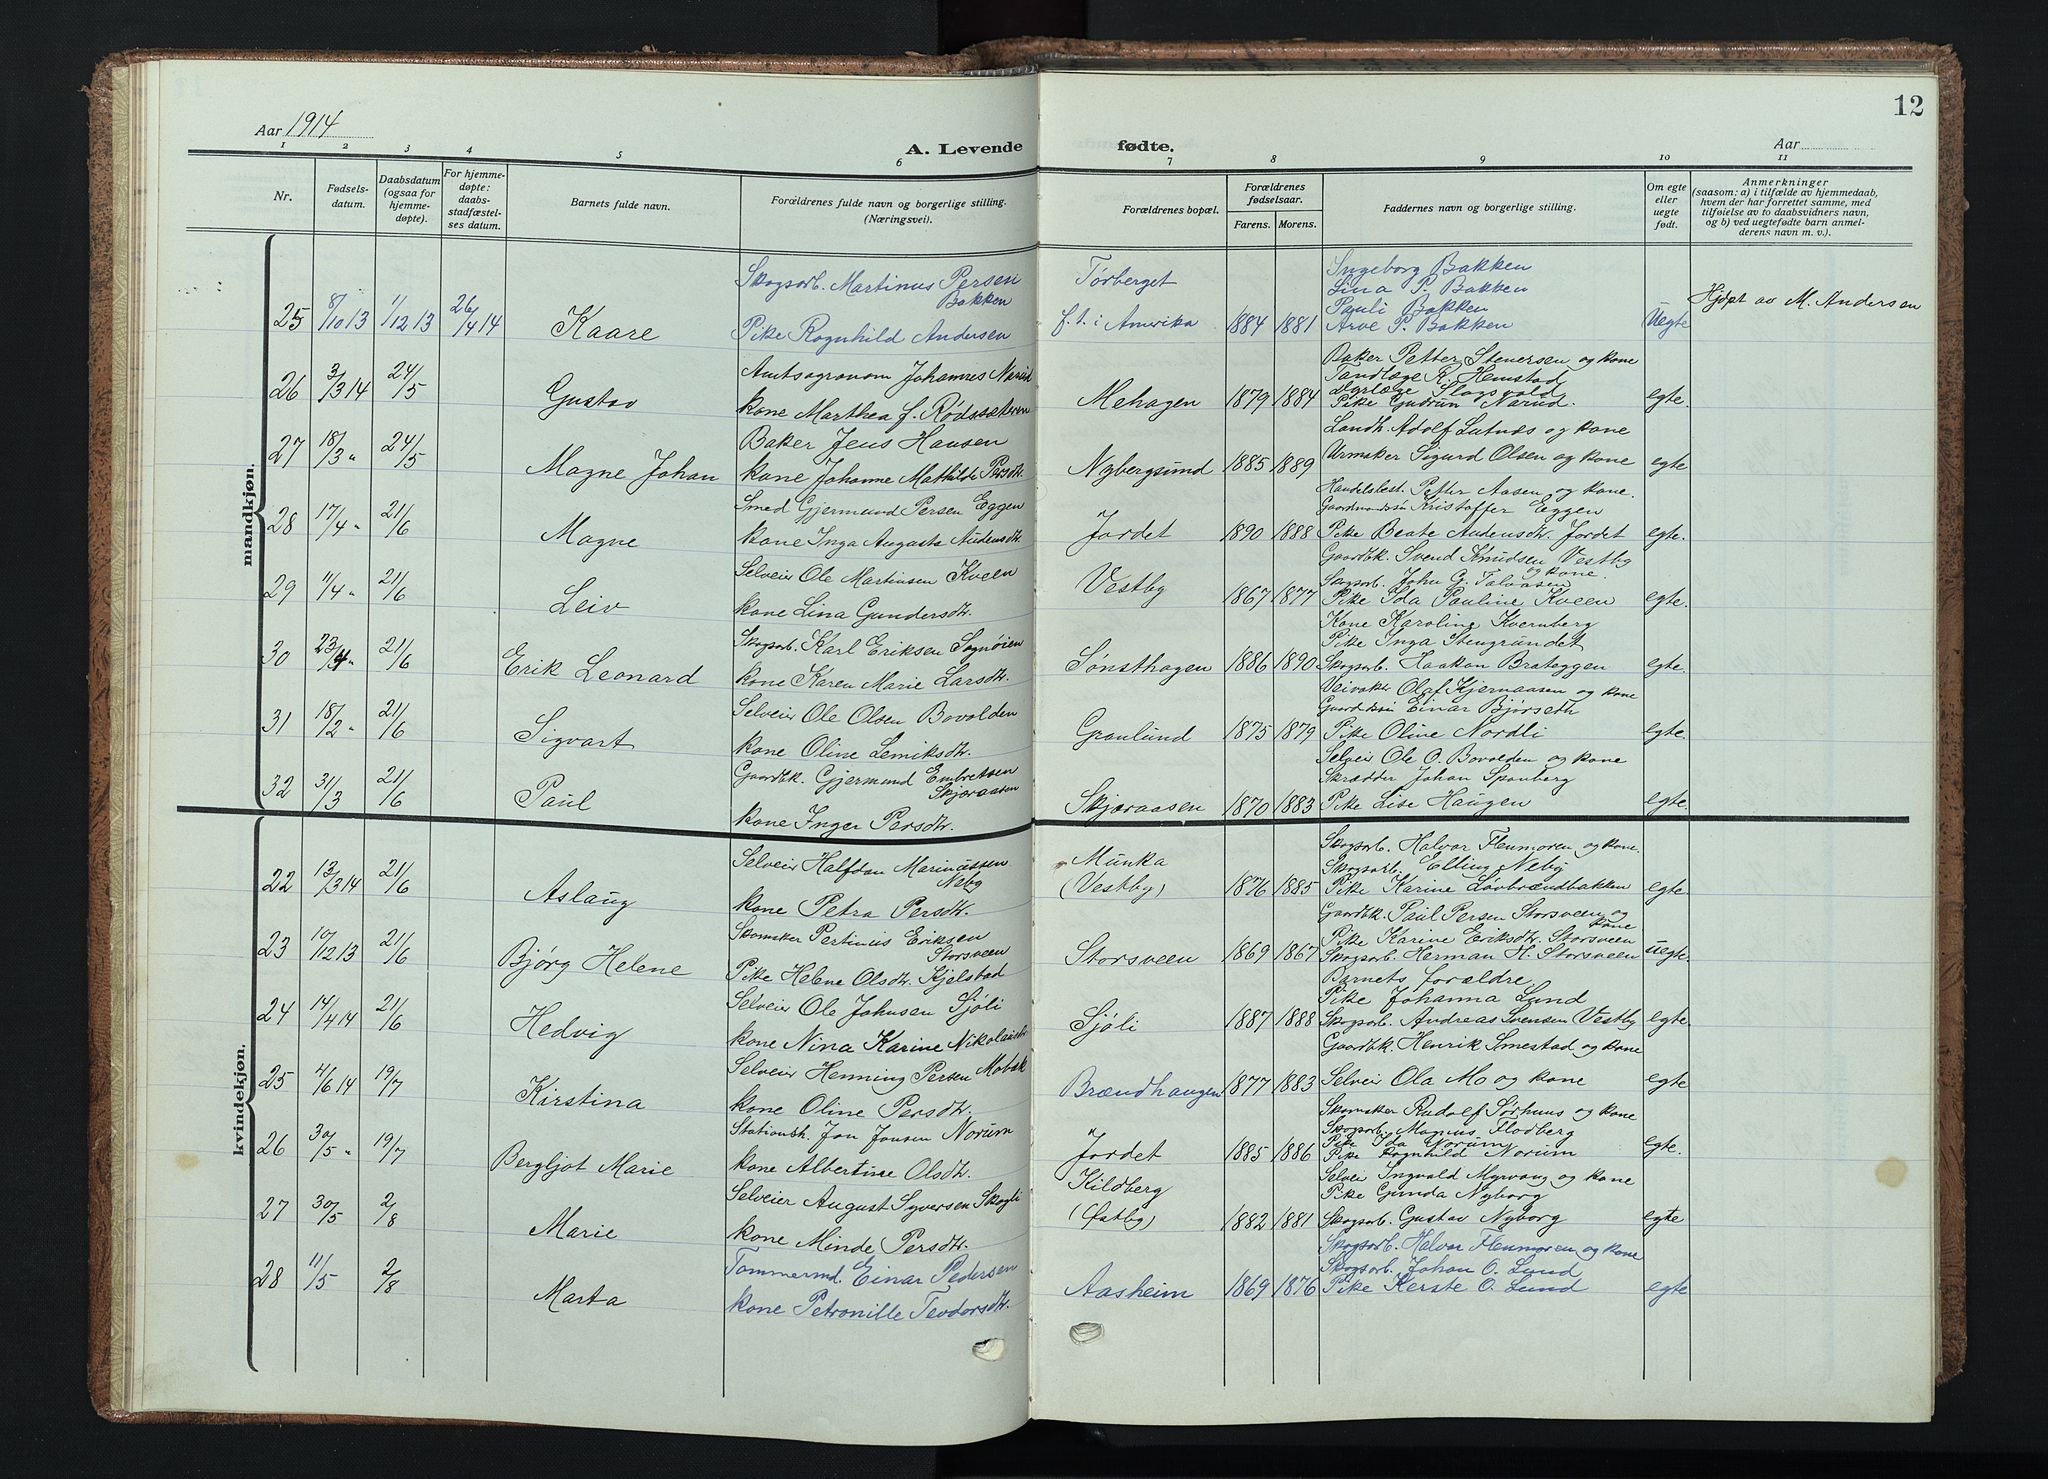 Aar 1914
A. Levende
fødte.
Aar
12
1 2 3 4 5 6 7 8 9 10 11
Nr.
Fødsels-
datum.
Daabsdatum
(ogsaa for
hjemme-
døpte).
For hjemme-
døpte:
daabs-
stadfæstel-
ses datum.
Barnets fulde navn.
Forældrenes fulde navn og borgerlige stilling.
(Næringsvei).
Forældrenes bopæl.
Forældrenes
fødselsaar.
Farens. Morens.
Faddernes navn og borgerlige stilling.
Om egte
eller
uegte
født.
Anmerkninger
(saasom: a) i tilfælde av hjemmedaab,
hvem der har forrettet samme, med
tilføielse av to daabsvidners navn,
og b) ved uegtefødte barn anmel-
derens navn m. v.).
mandkjøn.
25 8/10 13 1/12 13 26/4 14 Kaare
Skogsarb. Martinus Persen
Bakken
Pike Ragnhild Andersen
Tørberget
f. t. i Amerika
1884 1881
Ingeborg Bakken
Lina P. Bakken
Pauli Bakken
Arve P. Bakken
Uegte
Hjdpt av M. Andersen
26 3/3 14 24/5 Gustav
Amtsagronom Johannes Narud
kone Marthea f. Rødssæteren
Mehagen
1879 1884
Baker Petter Stenersen og kone
Tandlæge R. Hemstad
Dyrlæge Slagsvold
Pike Gudrun Narud.
egte.
27 18/3 " 24/5 Magne Johan
Baker Jens Hansen
kone Johanne Mathilde Persdtr.
Nybergsund
1885 1889
Landh. Adolf Lutnæs og kone
Urmaker Sigurd Olsen og kone
egte
28 17/4 " 21/6 Magne
Smed Gjermund Persen Eggen
kone Inga Augusta Audensdtr.
Jordet
1890 1888
Handelsbest. Petter Aasen og kone.
Gaardmandssøn Kristoffer Eggen
Pike Beate Audensdtr. Jordet
egte.
29 11/4 " 21/6 Leiv
Selveier Ole Martinsen Kveen
kone Lina Gundersdtr.
Vestby
1867 1877
Gaardbk. Svend Knudsen Vestby
og kone.
Skogsarb. John G. Talaasen
Pike Ida Pauline Kveen
egte.
30 23/4 " 21/6 Erik Leonard
Skogsarb. Karl Eriksen Sognøien
kone Karen Marie Larsdtr.
Sønsthagen
1886 1890
Kone Karoline Kvernberg
Pike Inga Stengrundet
Skogsarb. Haakon Brateggen
egte.
31 18/2 " 21/6 Sigvart
Selveier Ole Olsen Bovolden
kone Oline Lemiksdtr.
Granlund
1875 1879
Veivokter Olaf Kjernaasen og kone
Gaardssøn Einar Bjørseth
Pike Oline Nordli
egte.
32 31/3 21/6 Paul
Gaardbk. Gjermund Embretsen
Skjæraasen
kone Inger Persdtr.
Skjæraasen
1870 1883
Selveier Ole O. Bovolden og kone
Skrædder Johan Spanberg
Pike Lise Haugen
egte.
kvindekjøn.
22 13/3 14 21/6 Aslaug
Selveier Halfdan Marinussen
Neby
kone Petra Persdtr.
Munka
(Vestby)
1876 1885
Skogsarb. Halvor Flenmoren og kone.
Skogsarb. Elling Neby
Pike Karine Løvbrændbakken
egte
23 10/12 13 21/6 Bjørg Helene
Skomaker Pertinus Eriksen
Storsveen
Pike Helene Olsdtr. Kjelstad
Storsveen
1869 1867
Gaardbk. Paul Persen Storsveen og
kone
Pike Karine Eriksdtr. Storsveen
Skogsarb. Herman H. Storsveen
uegte
24 14/4 14 21/6 Hedvig
Selveier Ole Johnsen Sjøli
kone Nina Karine Nikolaisdtr.
Sjøli
1887 1888
Barnets forældre
Pike Johanna Lund
Skogsarb. Andreas Svensen Vestby
egte
25 4/6 14 19/7 Kirstina
Selveier Henning Persen Mobæk
kone Oline Persdtr.
Brændhaugen
1877 1883
Gaardbk. Henrik Smestad og kone
Selveier Ola Mo og kone
egte
26 30/5 " 19/7 Bergljot Marie
Stationsh. Jon Jonsen Norum
kone Albertine Olsdtr.
Jordet
1885 1886
Skomaker Rudolf Sørhuus og kone
Skogsarb. Magnus Flodberg
Pike Ida Norum
Pike Ragnhild Norum
egte.
27 30/5 2/8 Marie
Selveier August Syversen Skogli
kone Minde Persdtr.
Kildberg
(Østby)
1882 1881
Selveier Ingvald Myrvang og kone
Pike Gunda Nyborg
Skogsarb. Gustav Nyborg
egte
28 11/5 2/8 Marta
Tømmermd. Einar Pedersen
kone Petronille Teodorsdtr.
Aasheim
1869 1876
Skogsarb. Halvor Flenmoren og kone
Skogsarb. Johan O. Lund
Pike Kerste O. Lund
egte